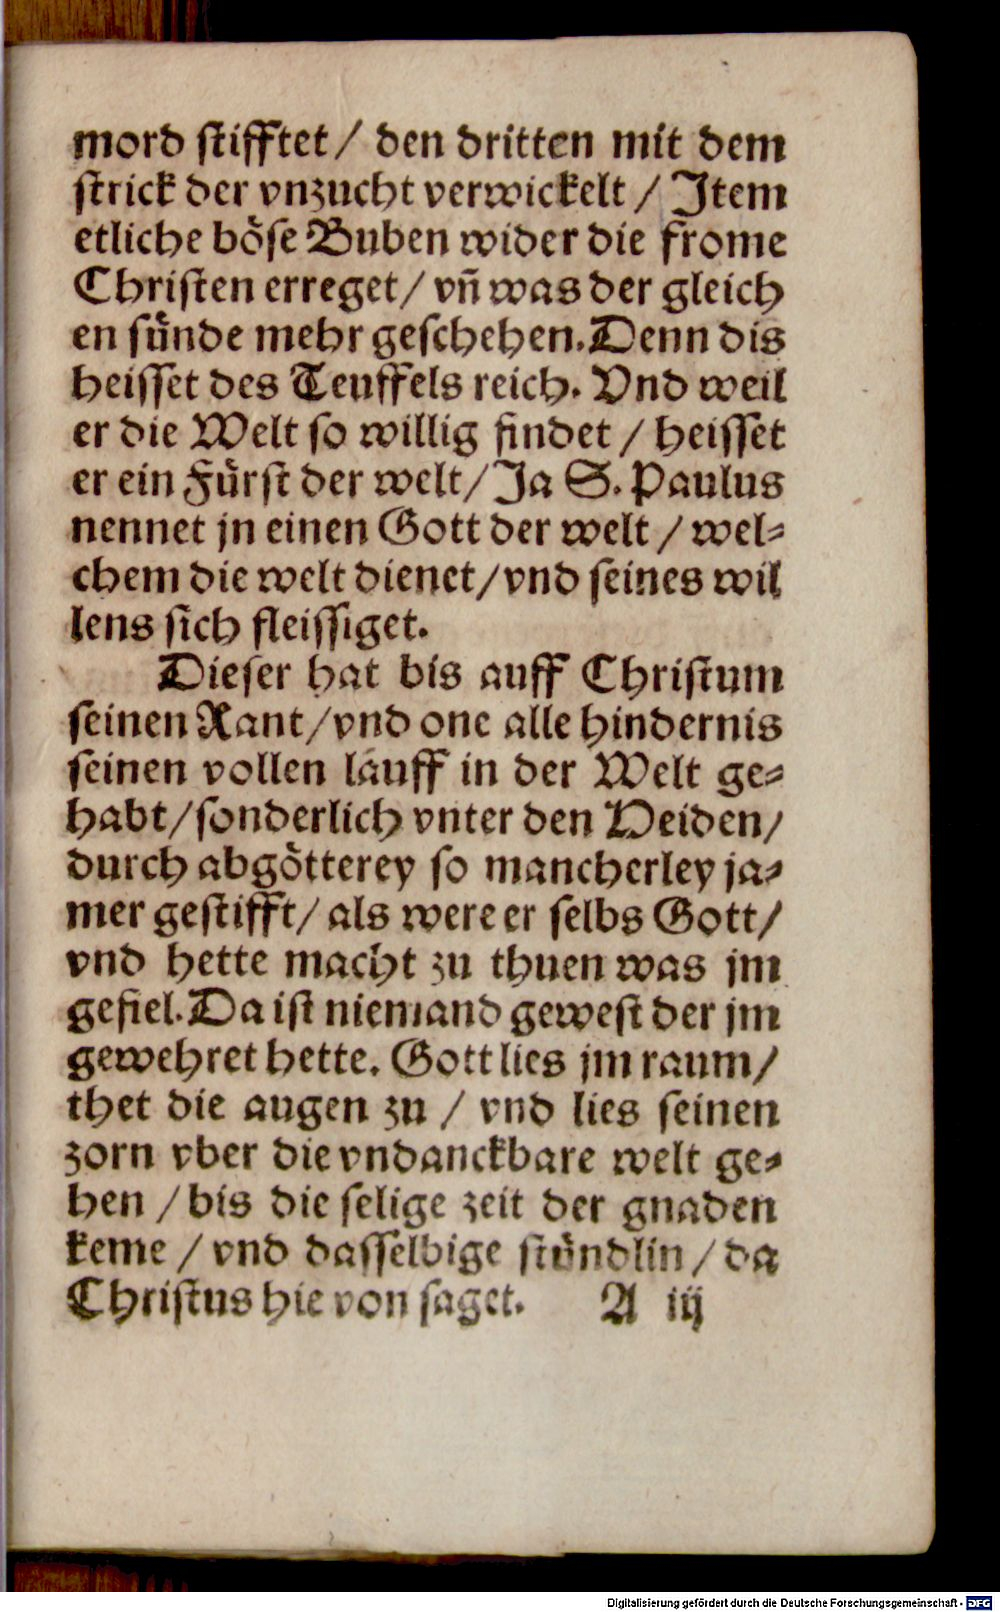 mord stifftet / den dritten mit dem
strick der vnzucht verwickelt / Item
etliche böse Buben wider die frome
Christen erreget / vñ was der gleich
en sünde mehr geschehen. Denn dis
heisset des Teuffels reich. Vnd weil
er die Welt so willig findet / heisset
er ein Fürst der welt / Ja S. Paulus
nennet jn einen Gott der welt / wel-
chem die welt dienet / vnd seines wil
lens sich fleissiget.
Dieser hat bis auff Christum
seinen Rant / vnd one alle hindernis
seinen vollen lauff in der Welt ge-
habt / sonderlich vnter den Heiden /
durch abgötterey so mancherley ja-
mer gestifft / als were er selbs Gott /
vnd hette macht zu thuen was jm
gefiel. Da ist niemand gewest der jm
gewehret hette. Gott lies jm raum /
thet die augen zu / vnd lies seinen
zorn vber die vndanckbare welt ge-
hen / bis die selige zeit der gnaden
keme / vnd dasselbige stündlin / da
Christus hie von saget. A iij
Digitalisierung gefördert durch die Deutsche Forschungsgemeinschaft - DFG